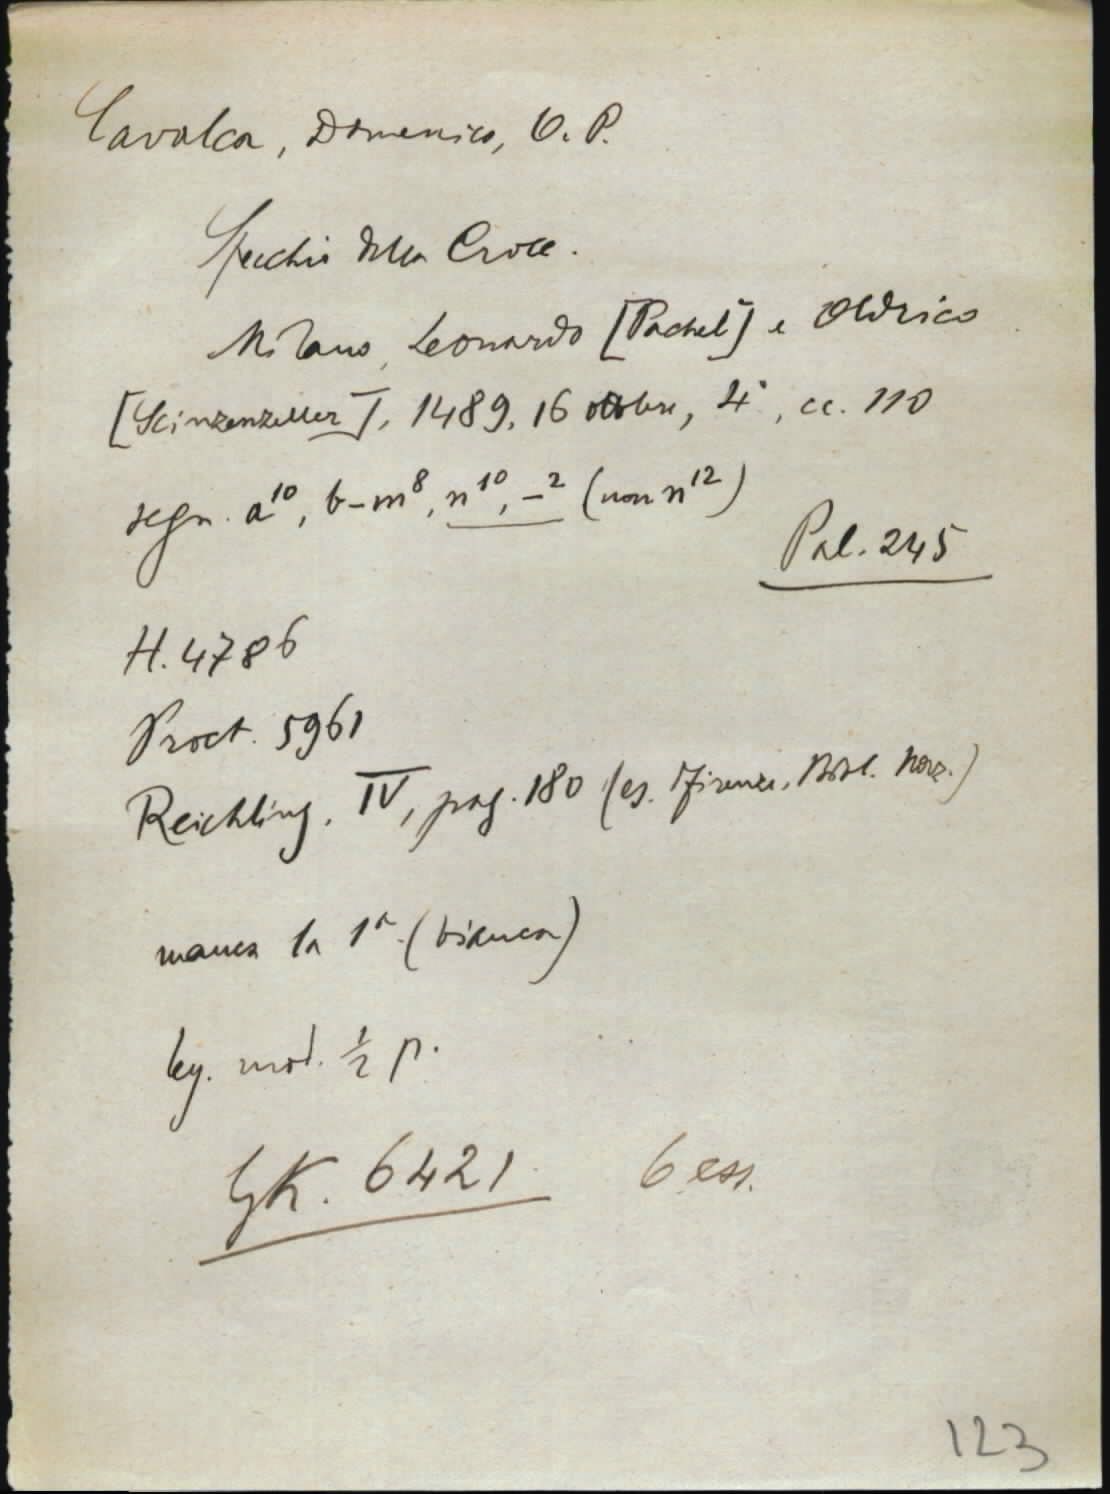 Cavalca, Domenico, O. P.
Specchio della Croce.
Milano, Leonardo [Pachel] e Oldrico
[Scinzenzeller], 1489, 16 ottobre, 4°, cc. 110
segn. a¹⁰, b-m⁸, n¹⁰, -² (non n¹²)
Pal. 245
H. 4786
Proct. 5961
Reichling, IV, pag. 180 (es. Firenze, Bibl. Naz.)
manca la 1ª (bianca)
leg. mod. ½ p.
GK. 6421 6 ess.
123